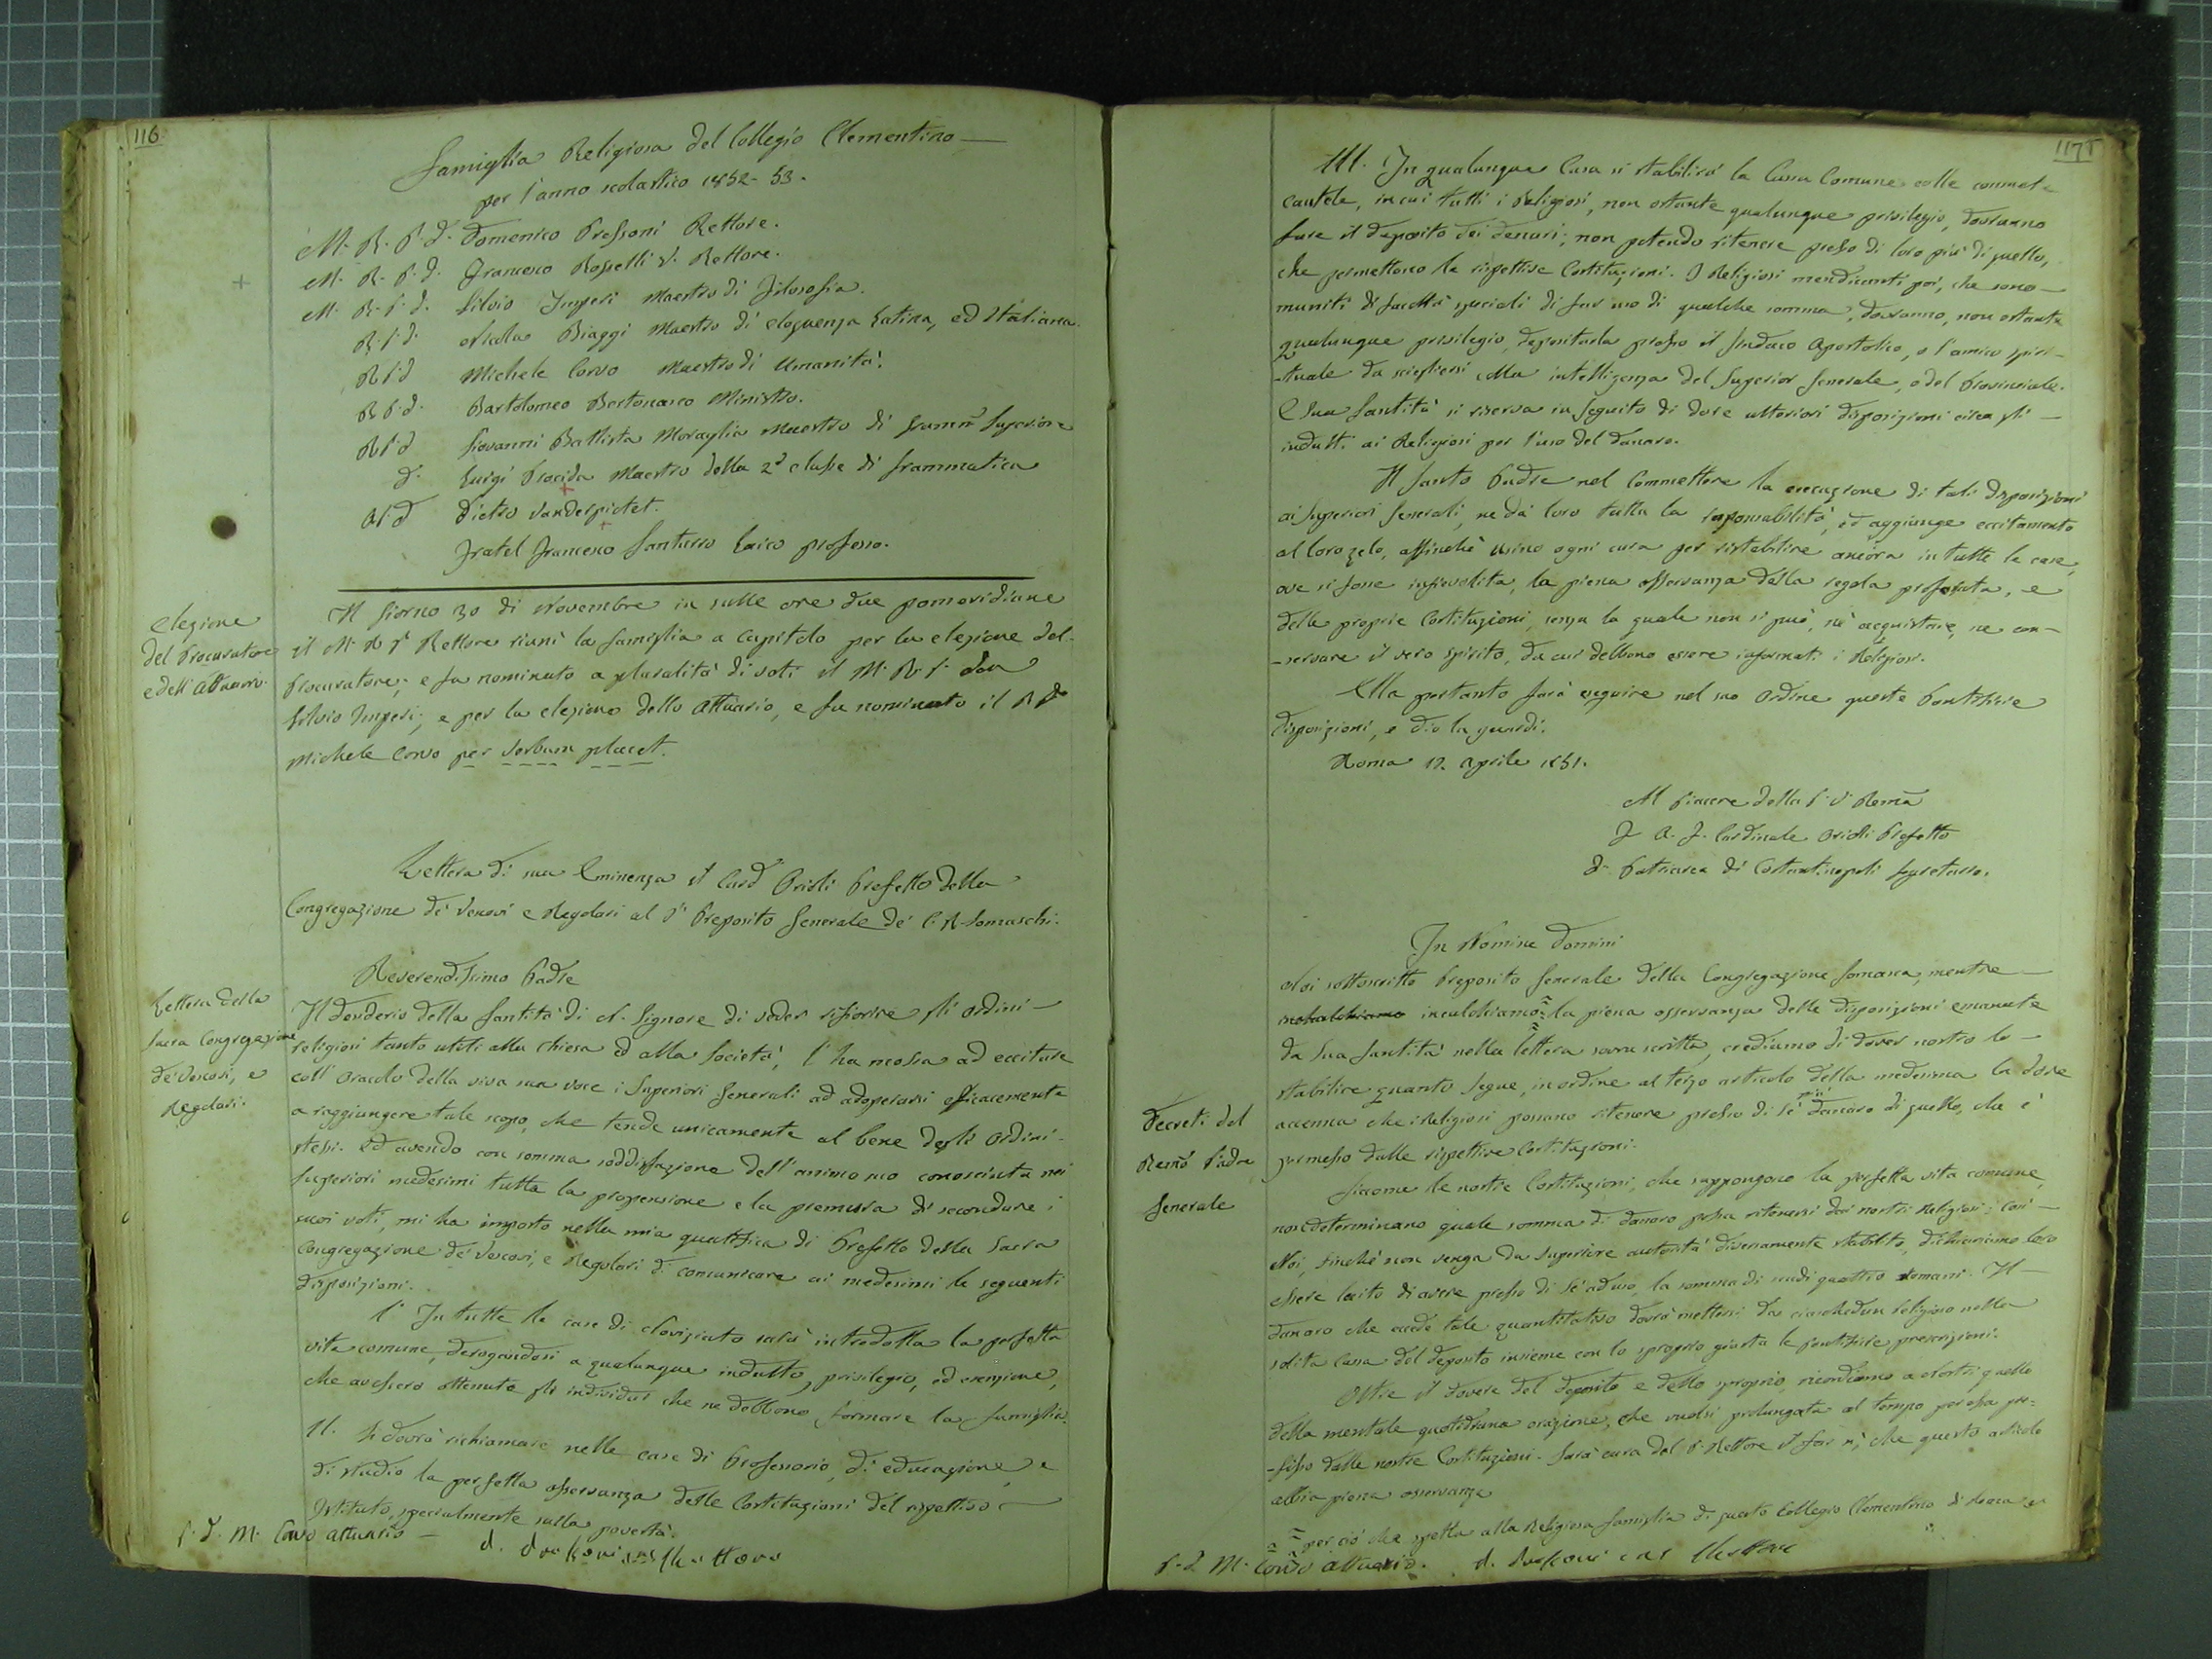 116.
Famiglia Religiosa del Collegio Clementino —
per l'anno scolastico 1852-53.
M. R. P. D. Domenico Pressoni Rettore.
M. R. P. D. Francesco Rosselli V. Rettore.
M. R. P. D. Silvio Imperi Maestro di Filosofia.
R. P. D. Nicola Biaggi Maestro di eloquenza Latina, ed Italiana.
R. P. D Michele Corvo Maestro di Umanità.
R. P. D. Bartolomeo Bertonasco Ministro.
R. P. D Giovanni Battista Moraglia Maestro di Gramm Superiore
D. Luigi Procida Maestro della 2ª classe di Grammatica
R. P. D Pietro Vanderpictet.
Fratel Francesco Santurro Laico professo.
elezione
del Procuratore
e dell'Attuario.
Il giorno 30 di Novembre in sulle ore due pomeridiane
il M. R. P. Rettore riunì la famiglia a Capitolo per la elezione del
Procuratore; e fu nominato a pluralità di voti il M. R. P. don
Silvio Imperi; e per la elezione dello Attuario, e fu nominato il R. P. D.
Michele Corvo per verbum placet.
Lettera di sua Eminenza il Card Orioli Prefetto della
Congregazione de' Vescovi e Regolari al P. Preposito Generale de' C. R. Somaschi.
Lettera della
Sacra Congregazione
de' Vescovi, e
Regolari.
Reverendissimo Padre
Il desiderio della Santità di N. Signore di veder rifiorire gli ordini —
religiosi tanto utili alla Chiesa ed alla Società, l'ha mossa ad eccitare
coll'oracolo della viva sua voce i Superiori Generali ad adoperarsi efficacemente
a raggiungere tale scopo, che tende unicamente al bene degli ordini
stessi. Ed avendo con somma soddisfazione dell'animo suo conosciuta nei
Superiori medesimi tutta la propensione e la premura di secondare i
suoi voti, mi ha imposto nella mia qualifica di Prefetto della Sacra
Congregazione de' Vescovi, e Regolari di comunicare ai medesimi le seguenti
disposizioni.
I. In tutte le case di Noviziato sarà introdotta la perfetta
vita comune, derogandosi a qualunque indulto, privilegio, ed esenzione,
che avessero ottenuto gli individui che ne debbono formare la famiglia.
II. Si dovrà richiamare nelle case di Professorio, di educazione, e
di studio la perfetta osservanza delle Costituzioni del rispettivo —
Istituto, specialmente sulla povertà.
P. D. M. Corvo attuario — d. Pressoni crs Rettore
117
III. In qualunque Casa si stabilirà la Cassa Comune colle consuete
cautele, in cui tutti i Religiosi, non ostante qualunque privilegio, dovranno
fare il deposito dei denari; non potendo ritenere presso di loro più di quello,
che permettono le rispettive Costituzioni. I Religiosi mendicanti poi, che sono —
muniti di facoltà speciali di far uso di qualche somma, dovranno, non ostante
qualunque privilegio, depositarla presso il Sindaco Apostolico, o l'amico spiri-
-tuale da scegliersi colla intelligenza del Superior Generale, o del Provinciale.
E Sua Santità si riserva in seguito di dare ulteriori disposizioni circa gli —
indulti ai Religiosi per l'uso del danaro.
Il Santo Padre nel commettere la esecuzione di tali disposizioni
ai Superiori Generali, ne dà loro tutta la responsabilità, ed aggiunge eccitamento
al loro zelo, affinchè usino ogni cura per ristabilire ancora in tutte le case,
ove si fosse infievolita, la piena osservanza della regola professata, e
delle proprie Costituzioni, senza la quale non si può, nè acquistare, ne con-
-servare il vero spirito, da cui debbono essere informati i Religiosi.
Ella pertanto farà eseguire nel suo Ordine queste Pontificie
disposizioni, e Dio la guardi.
Roma 12. Aprile 1851.
Al Piacere della P. V. Rema
F. A. F. Cardinale Orioli Prefetto
D. Patriarca di Costantinopoli Segretario.
In Nomine Domini
Decreti del
Remo Padre
Generale
Noi sottoscritto Preposito Generale della Congregazione Somasca, mentre —
inculchiamo la piena osservanza delle disposizioni emanate
da Sua Santità nella lettera sovrascritta, crediamo di dover nostro lo —
stabilire quanto segue, in ordine al terzo articolo della medesima là dove
accenna che i Religiosi possano ritenere presso di sè più danaro di quello, che è
permesso dalle rispettive Costituzioni.
Siccome le nostre Costituzioni, che suppongono la perfetta vita comune,
non determinano quale somma di danaro possa ritenersi dai nostri Religiosi; così —
Noi, finchè non venga da superiore autorità diversamente stabilito, dichiariamo loro
essere lecito di avere presso di sè ad uso la somma di scudi quattro romani. Il —
danaro che eccede tale quantitativo dovrà mettersi da ciaschedun religioso nella
solita Cassa del deposito insieme con lo sproprio giusta le pontificie prescrizioni.
Oltre il dovere del deposito e dello sproprio, ricordiamo a Nostri quello
della mentale quotidiana orazione, che vuolsi prolungata al tempo per essa pre-
-fisso dalle nostre Costituzioni. Sarà cura del P. Rettore il far sì, che questo articolo
abbia piena osservanza
per ciò che spetta alla Religiosa famiglia di questo Collegio Clementino di Roma
P. D. M. Corvo attuario. d. Pressoni crs Rettore